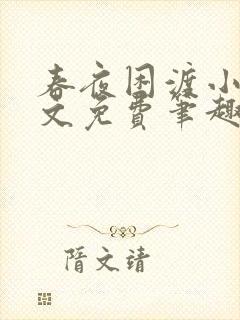 春夜困渡小
文免费笔趣
隋文靖